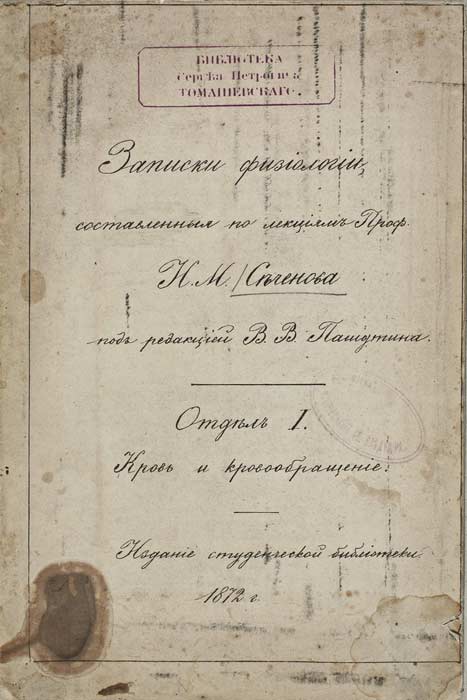 БИБЛІОТЕКА
Сергѣя Петровича
ТОМАШЕВСКАГО.
Записки физіологіи,
составленныя по лекціямъ Проф.
И. М. Сѣченова
подъ редакціей В. В. Пашутина.
Отдѣлъ I.
Кровь и кровообращеніе.
Изданіе студенческой библіотеки.
1872 г.